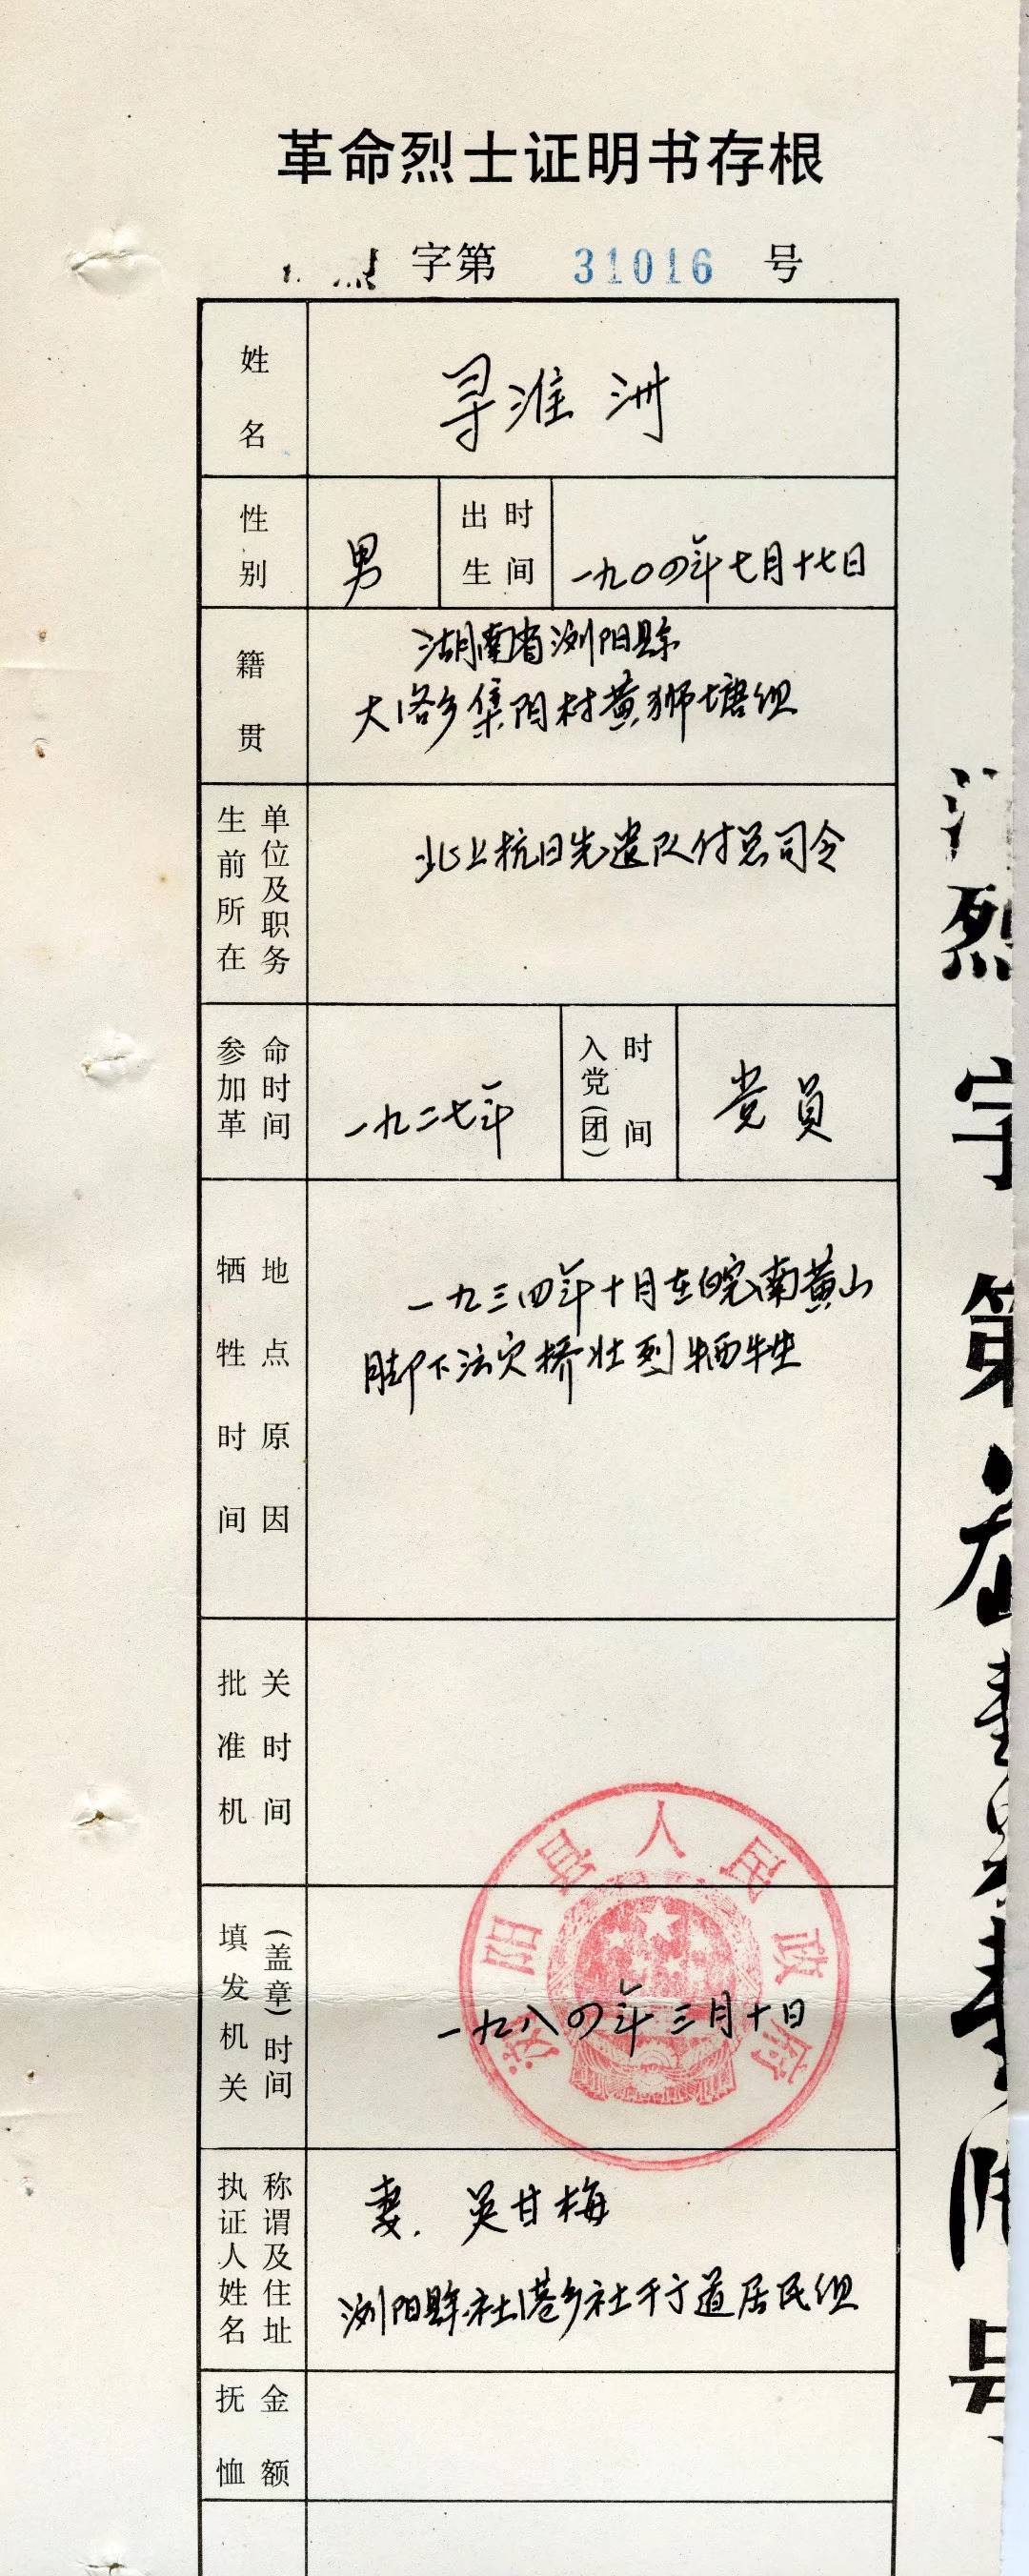 革命烈士证明书存根
字第 31016 号
姓名 寻淮洲
性别 男 出生时间 一九〇四年七月十七日
籍贯 湖南省浏阳县
大洛乡集阳村黄狮塘组
生前所在单位及职务 北上抗日先遣队付总司令
参加革命时间 一九二七年 入党(团)时间 党员
牺牲时间地点原因 一九三四年十月在皖南黄山
脚下法穴桥壮烈牺牲
批准机关时间
填发机关(盖章)时间 一九八〇年三月十日
浏阳县人民政府
执证人姓名称谓及住址 妻. 吴甘梅
浏阳县社港乡社干亍道居民组
抚恤金额
烈字第
号